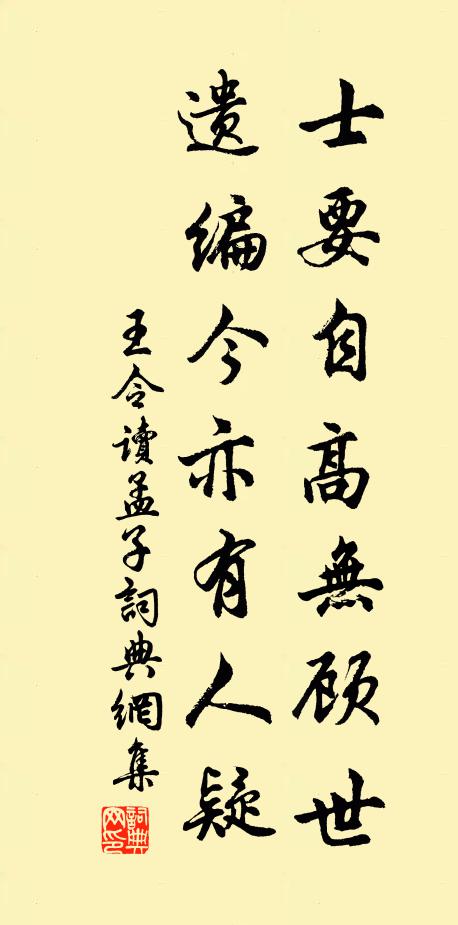 士要自高無顾世
遗编今亦有人疑
王令读孟子詞典網集
詞典網印